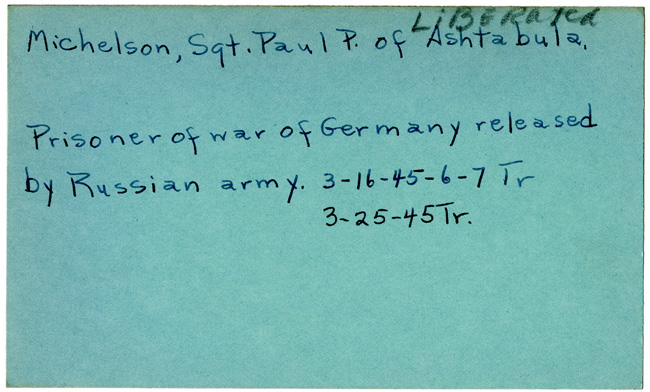 LiBERated
Michelson, Sgt. Paul P. of Ashtabula.
Prisoner of war of Germany released
by Russian army. 3-16-45-6-7 Tr
3-25-45 Tr.